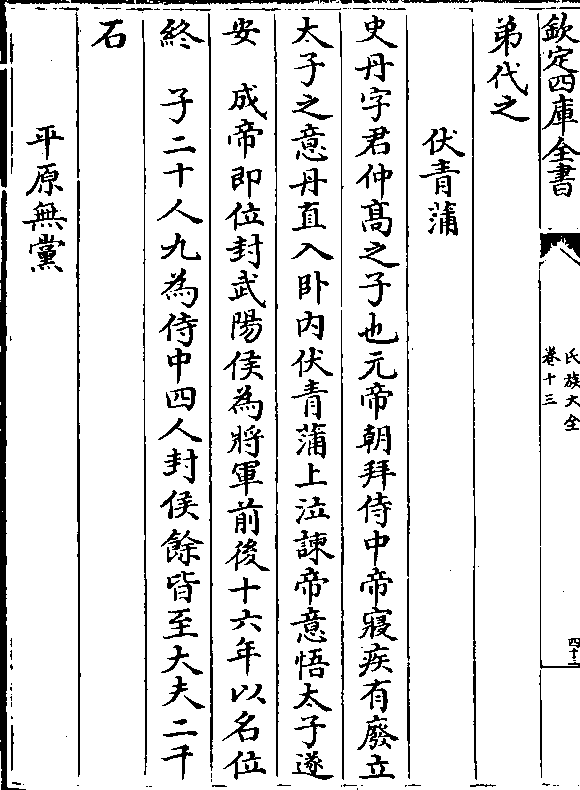 欽定四庫全書
氏族大全
卷十三
四十二
弟代之
伏青蒲
史丹字君仲高之子也元帝朝拜侍中帝寢疾有廢立
太子之意丹直入卧内伏青蒲上泣諫帝意悟太子遂
安 成帝即位封武陽侯為將軍前後十六年以名位
終 子二十人九為侍中四人封侯餘皆至大夫二千
石
平原無黨